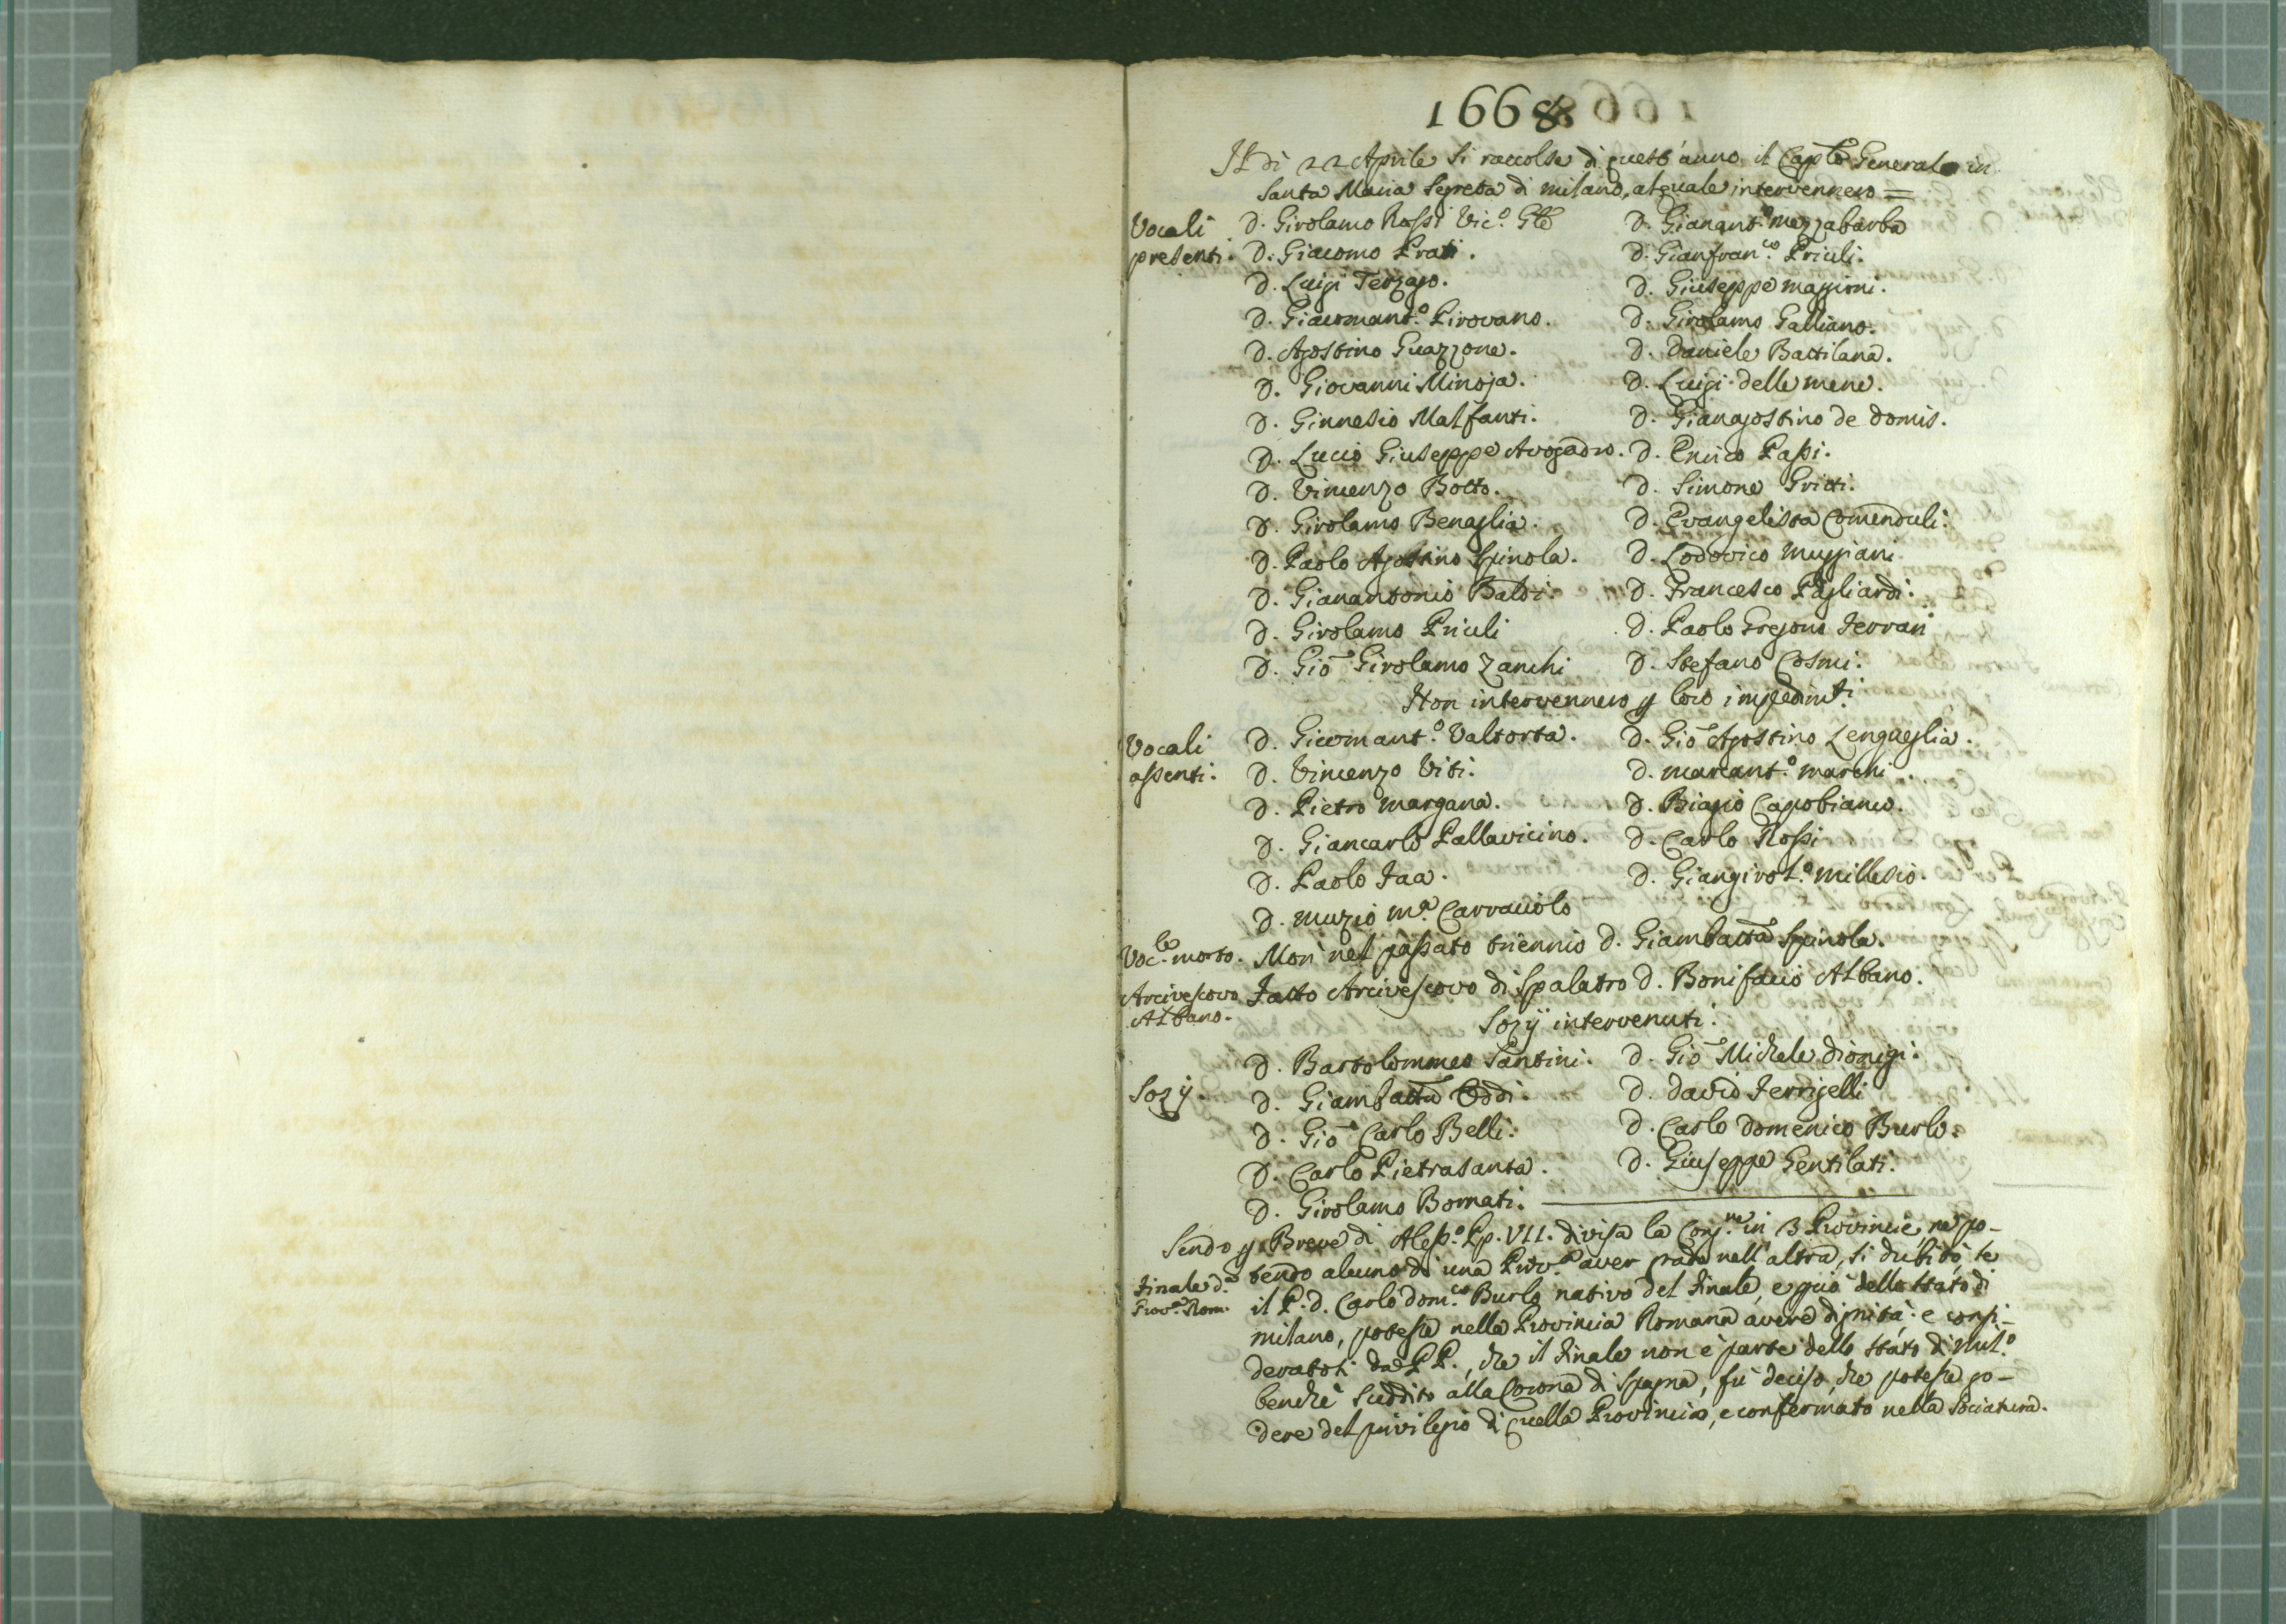 1668
Il dì 22 Aprile si raccolse di quest'anno il Caplo Generale in
Santa Maria Segreta di milano, al quale intervennero =
Vocali presenti.
D. Girolamo Rossi Vic.o Gle
D. Giacomo Prati.
D. Luigi Terzago.
D. Giacomant.o Pirovano.
D. Agostino Guazzone.
D. Giovanni Minoja.
D. Ginnesio Malfanti.
D. Lucio Giuseppe Avogadro.
D. Vincenzo Botto.
D. Girolamo Benaglia.
D. Paolo Agostino Spinola.
D. Gianantonio Baldi.
D. Girolamo Priuli
D. Gio Girolamo Zanchi
D. Gianant.o mezzabarba
D. Gianfran.co Priuli.
D. Giuseppe magioni.
D. Girolamo Galliano.
D. Daniele Battilana.
D. Luigi delle mene.
D. Gianagostino de Domis.
D. Enrico Passi.
D. Simone Gritti.
D. Evangelista Comenduli.
D. Lodovico muggiani
D. Francesco Pagliardi.
D. Paolo Gregorio Ferrari
D. Stefano Cosmi.
Non intervennero p loro impedimti
Vocali assenti.
D. Giacomant.o Valtorta.
D. Vincenzo Viti.
D. Pietro margana.
D. Giancarlo Pallavicino.
D. Paolo Faa.
D. muzio m.a Carraciolo
D. Gio Agostino Lengueglia.
D. marcant.o marchi.
D. Biagio Capobianco.
D. Carlo Rossi
D. Giangirol.o millesio.
Voc.le morto. Morì nel passato triennio D. Giambatta Spinola.
Arcivescovo Albano. Fatto Arcivescovo di Spalatro D. Bonifacio Albano.
Sozÿ intervenuti.
Sozÿ.
D. Bartolommeo Santini.
D. Giambatta Oddi.
D. Gio Carlo Belli.
D. Carlo Pietrasanta.
D. Girolamo Bornati.
D. Gio Michele Dionigi.
D. David Ferrigelli
D. Carlo Domenico Burlo.
D. Giuseppe Gentilati.
Sendo p Breve di Aless.o Pp. VII. divisa la Cong.ne in 3 Provincie, ne po-
Finale d.a Prov.a Rom.
tendo alcuno di una Prov.a aver grado nell'altra, si dubitò, se
il P. D. Carlo Dom.co Burlo nativo del Finale, e più dello stato di
milano, potesse nella Provincia Romana avere dignità: e consi-
deratosi da PP., che il Finale non è parte dello stato di Mil.o
benchè suddito alla Corona di Spagna, fù deciso, che potesse go-
dere del privilegio di quella Provincia, e confermato nella Sociatura.